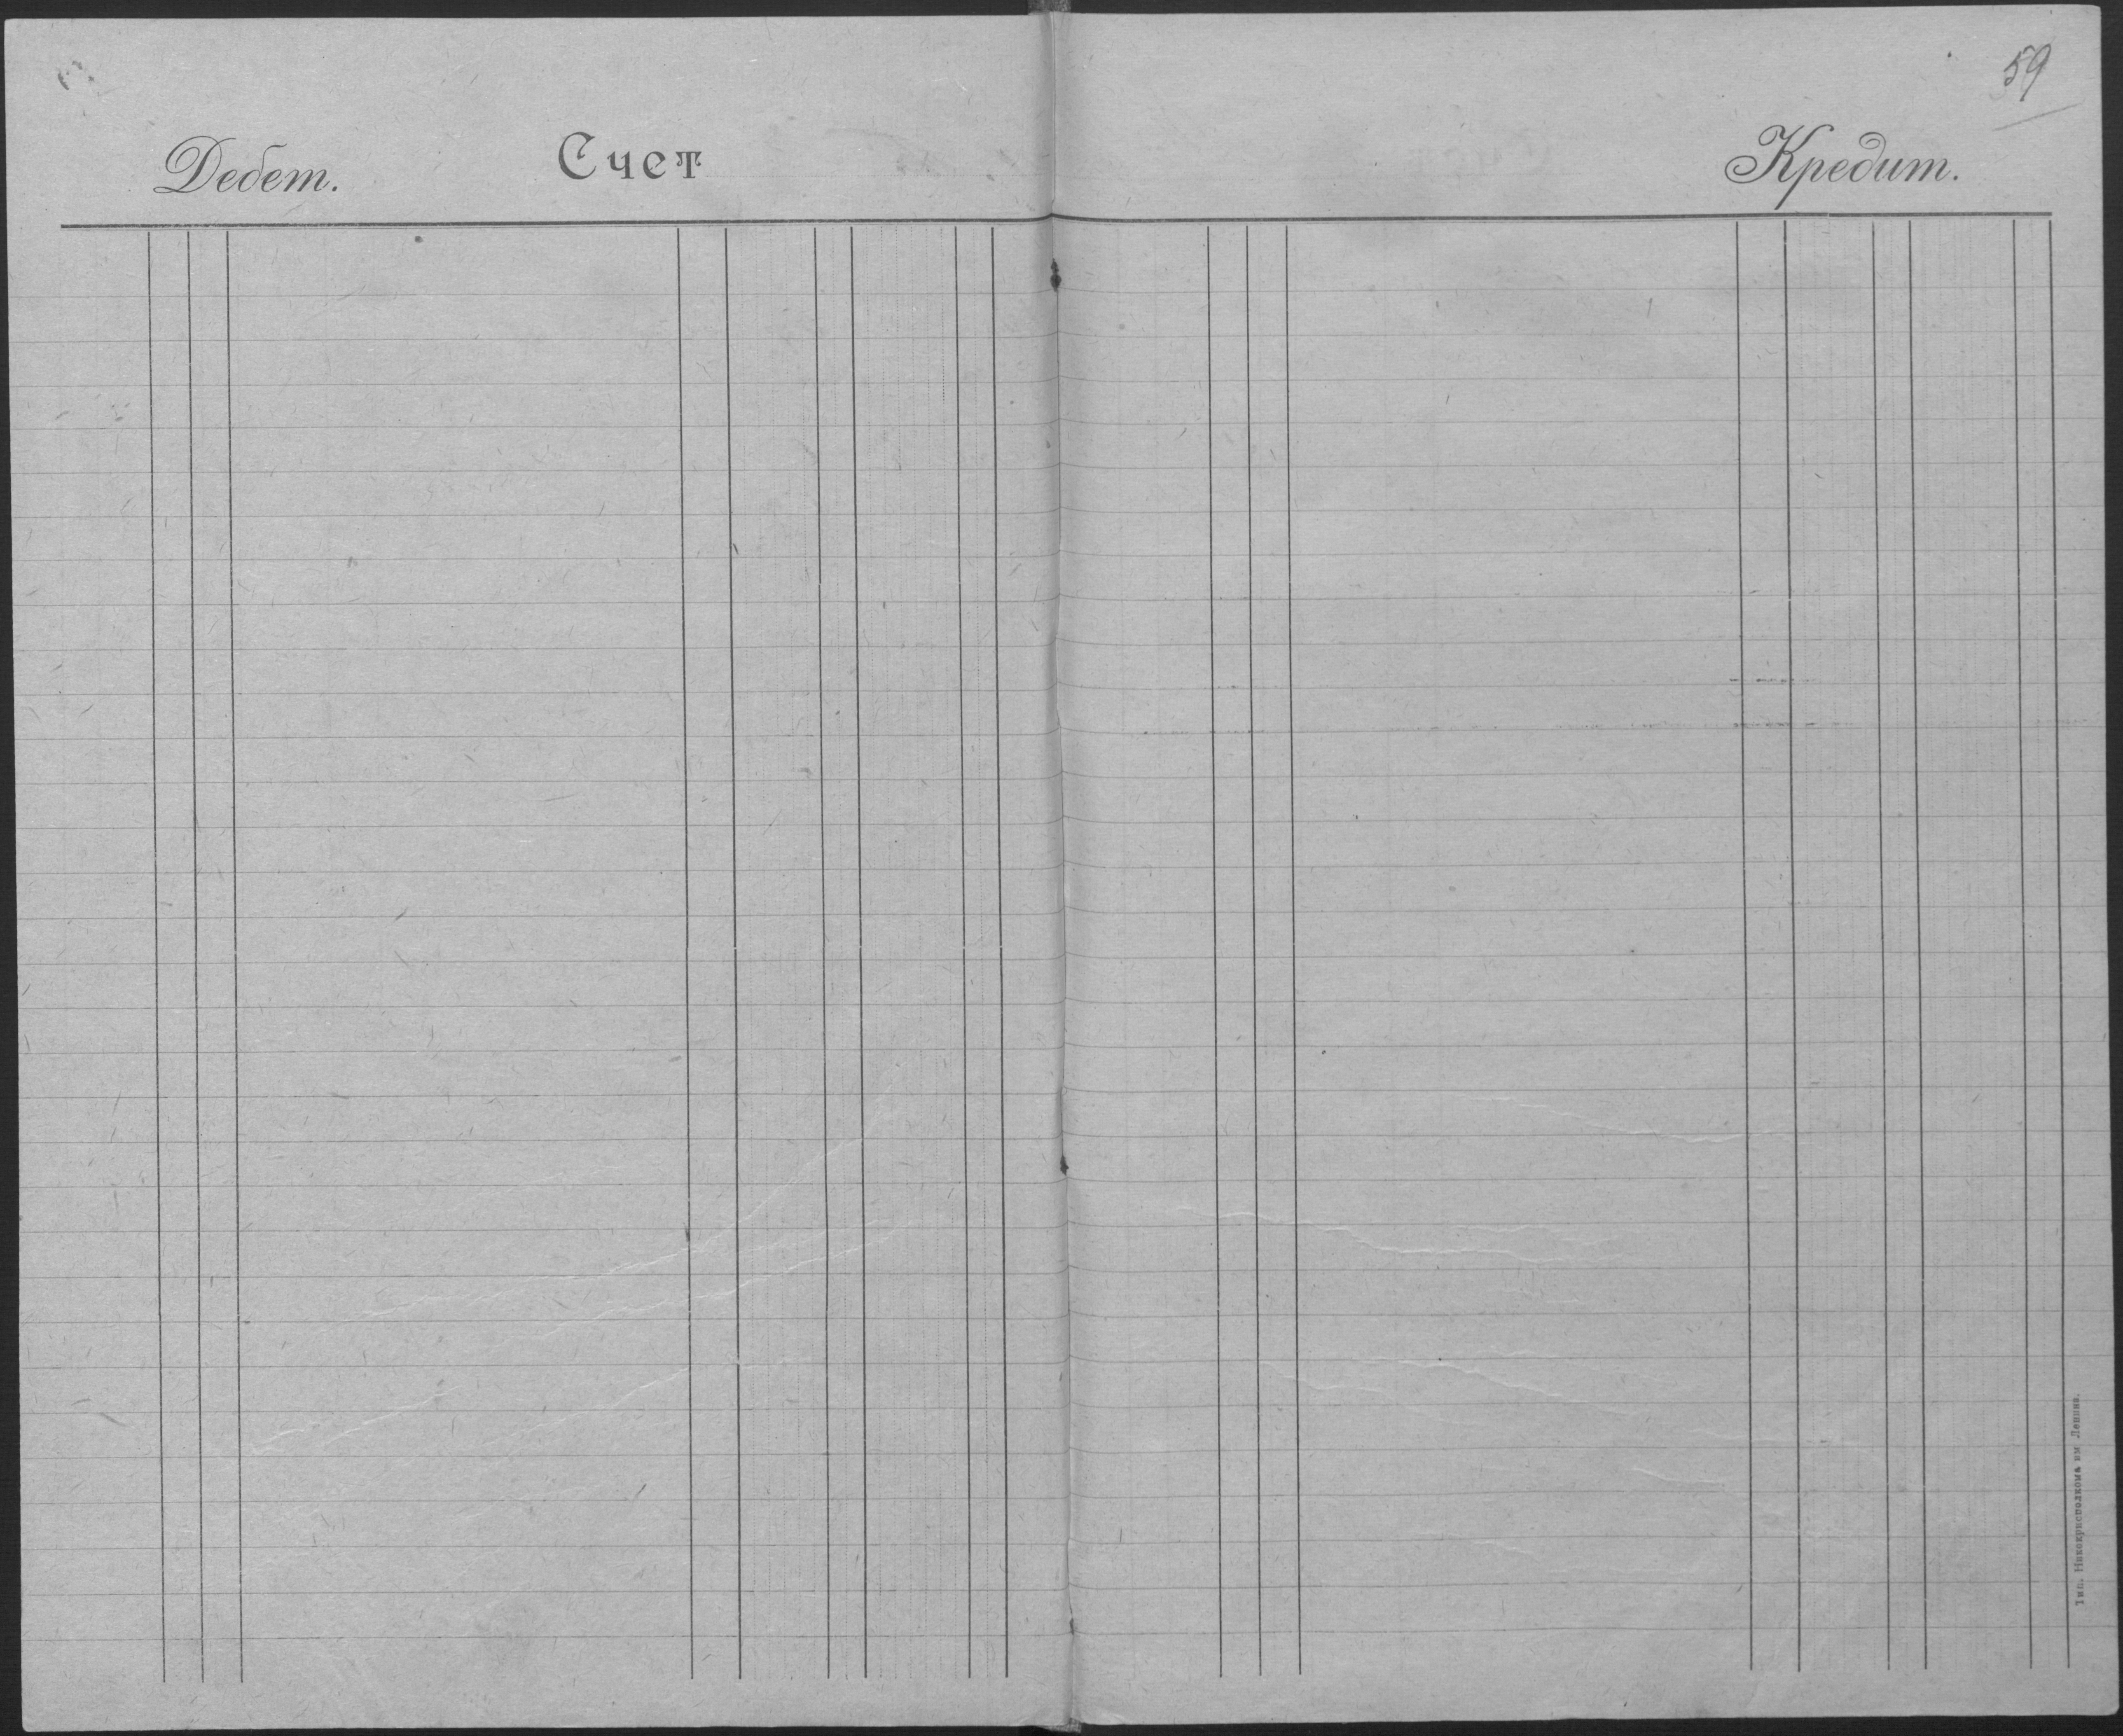 59
Дебет. Счет Кредит.
Тип. Никокрисполкома им Ленина.